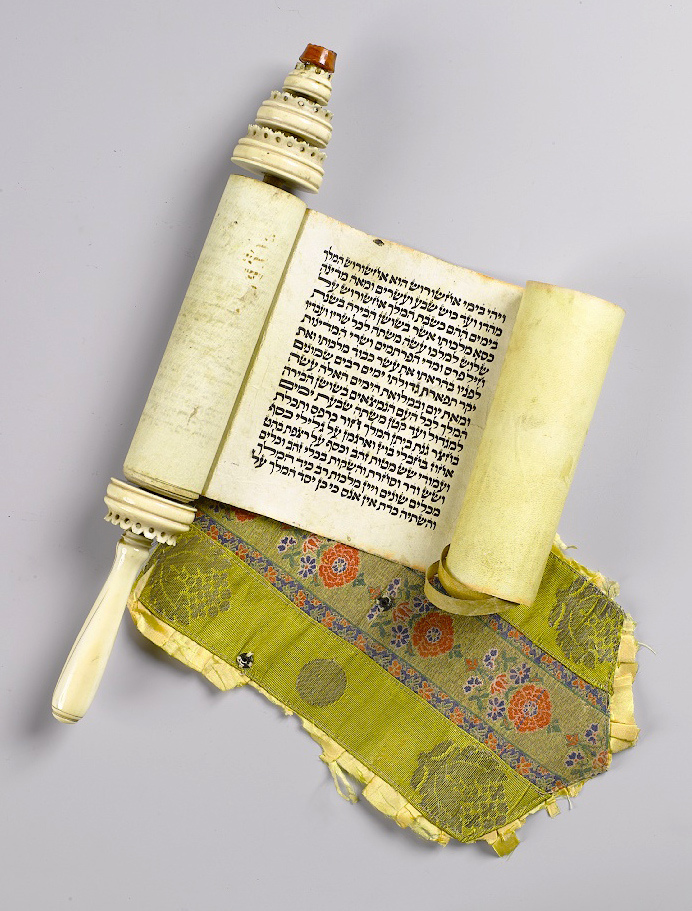 ויהי בימי אחשורוש הוא אחשורוש המלך
מהדו ועד כוש שבע ועשרים ומאה מדינה
בימים ההם כשבת המלך אחשורוש על
כסא מלכותו אשר בשושן הבירה בשנת
שלוש למלכו עשה משתה לכל שריו ועבדיו
חיל פרס ומדי הפרתמים ושרי המדינות
לפניו בהראתו את עשר כבוד מלכותו ואת
יקר תפארת גדולתו ימים רבים שמונים
ומאת יום ובמלואת הימים האלה עשה
המלך לכל העם הנמצאים בשושן הבירה
למגדול ועד קטן משתה שבעת ימים
בחצר גנת ביתן המלך חור כרפס ותכלת
אחוז בחבלי בוץ וארגמן על גלילי כסף
ועמודי שש מטות זהב וכסף על רצפת בהט
ושש ודר וסחרת והשקות בכלי זהב וכלים
מכלים שונים ויין מלכות רב כיד המלך
והשתיה כדת אין אנס כי כן יסד המלך על